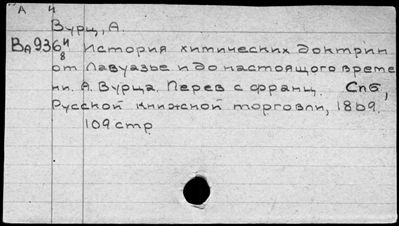 А 4
Вурц, А.
ВА936 4/8 История химических доктрин
от Лавуазье и до настоящего време
ни. А. Вурца. Перев с франц. Спб,
Русской книжной торговли, 1869.
109 стр